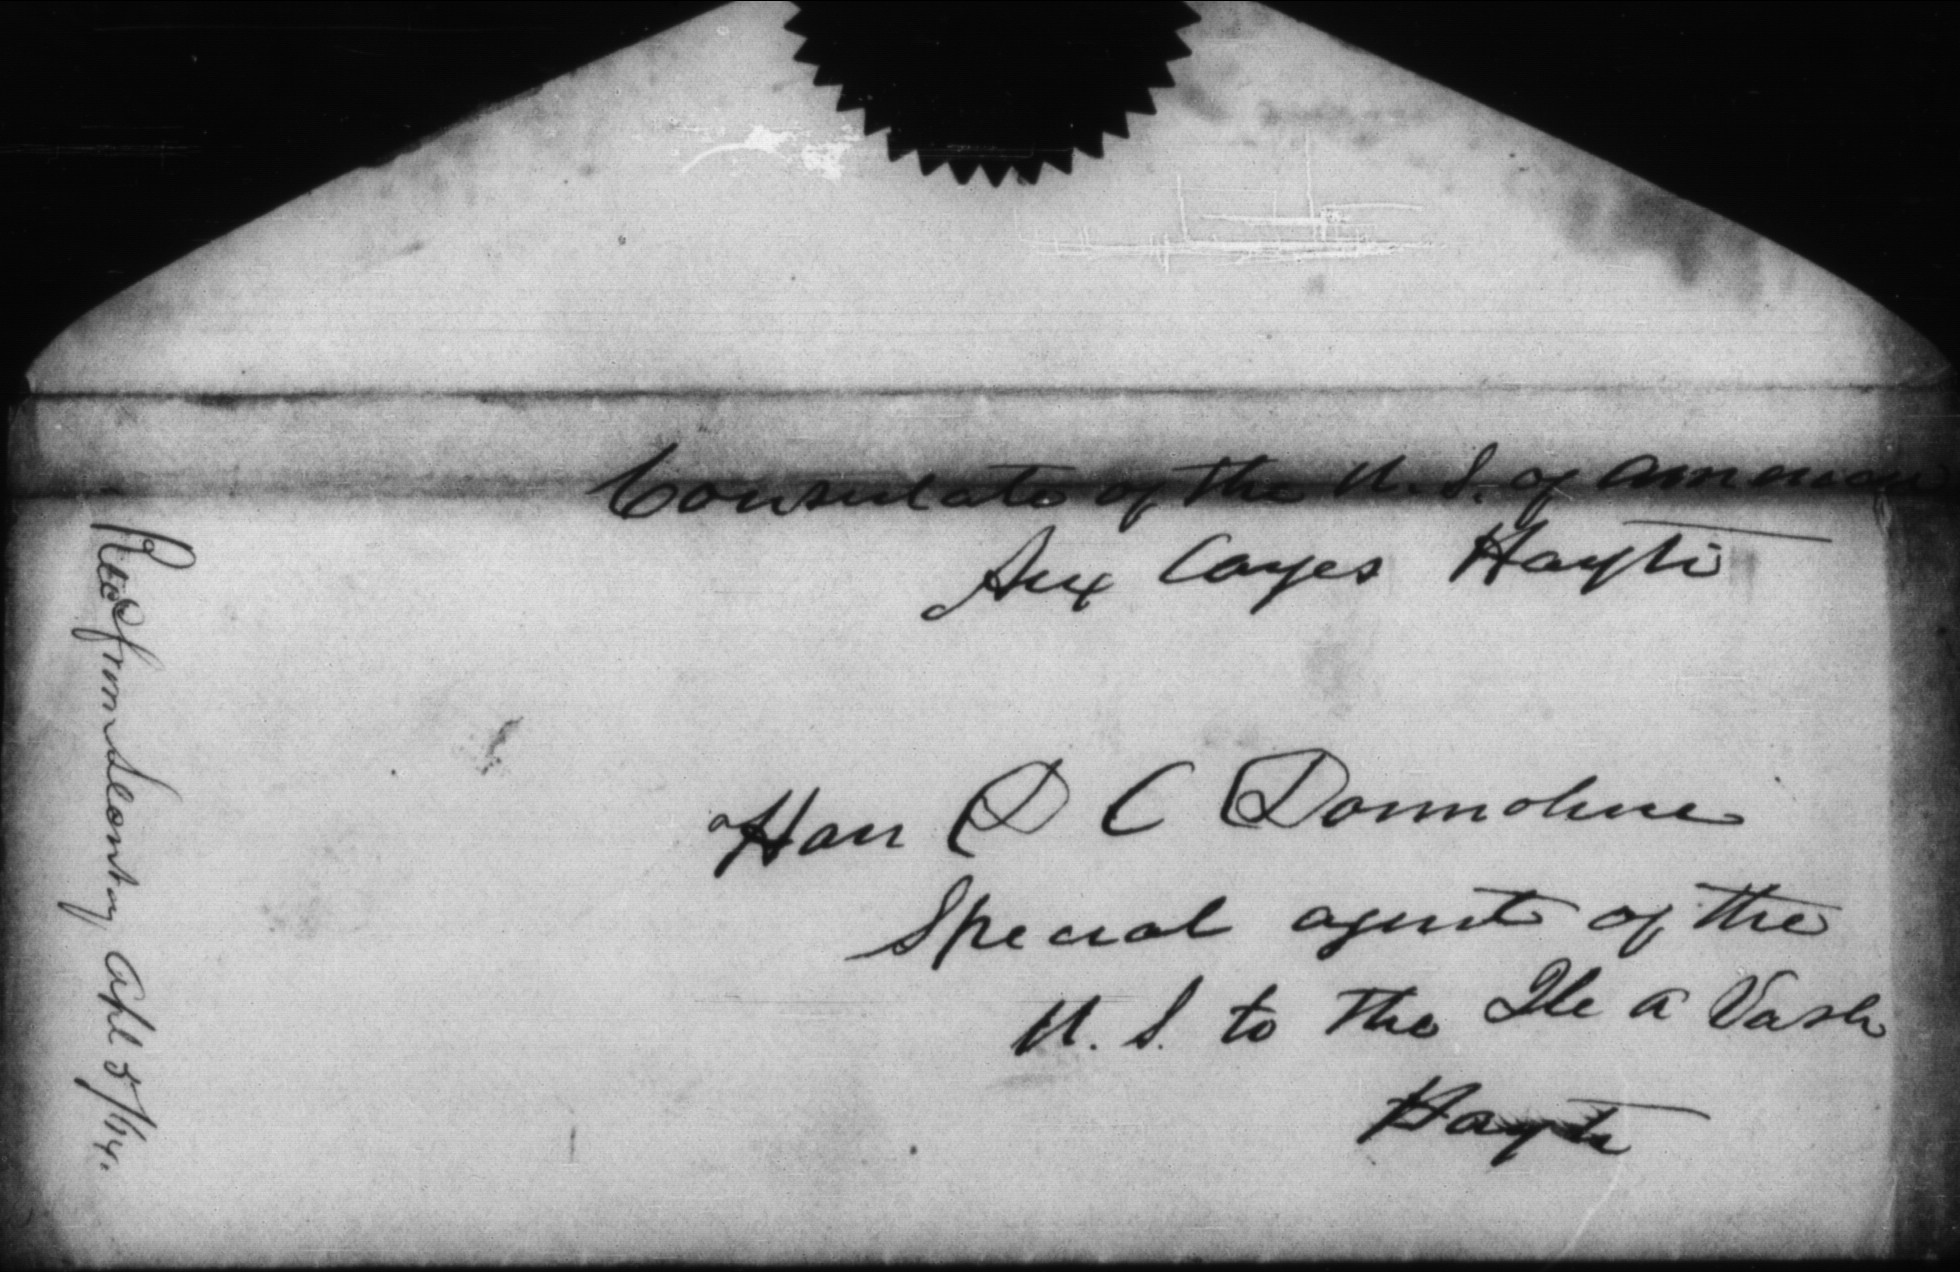 Consulate of the U. S. of America
Aux Cayes Hayti
Hon D C Donnohue
Special agent of the
U. S. to the Ile a Vash
Hayti
Recd from Apl 5/64.